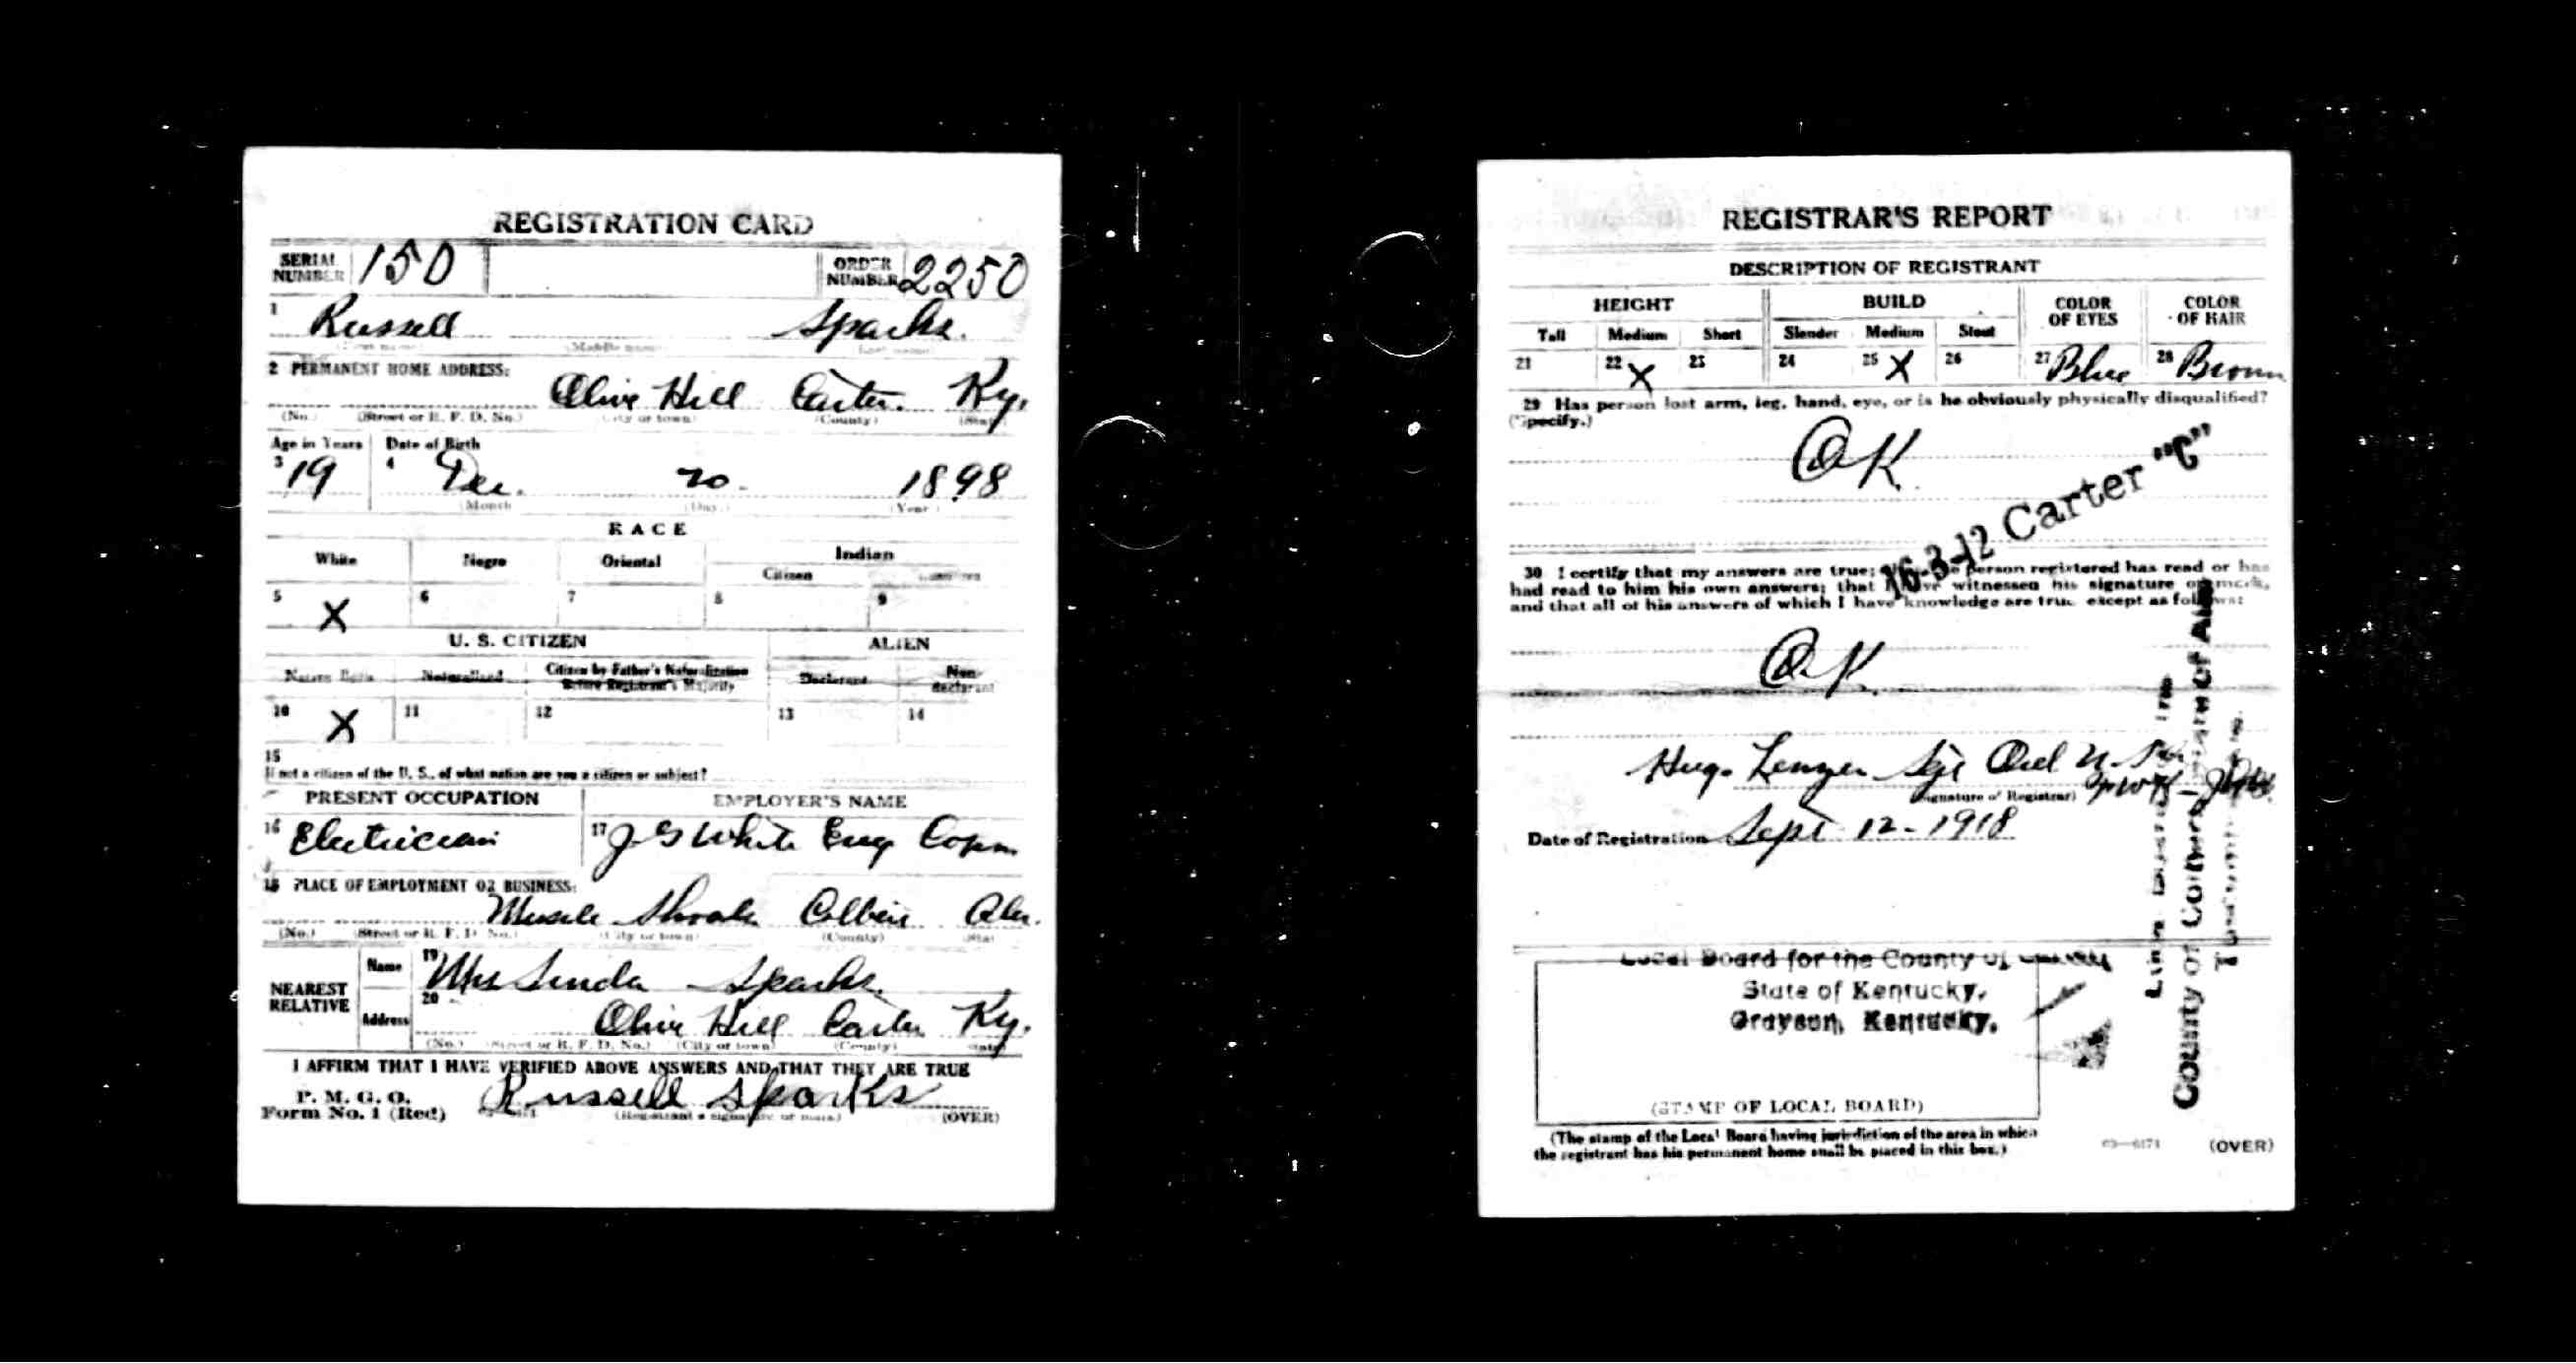 REGISTRATION CARD
SERIAL NUMBER 150 ORDER NUMBER 2250
1 Russell Sparks.
(First name) (Middle name) (Last name)
2 PERMANENT HOME ADDRESS:
Olive Hill Carter. Ky.
(No.) (Street or R. F. D. No.) (City or town) (County) (State)
Age in Years Date of Birth
3 19 4 Dec. 20. 1898
(Month) (Day) (Year)
RACE
White Negro Oriental Indian
Citizen
5 X 6 7 8 9
U. S. CITIZEN ALIEN
Native Born Naturalized Citizen by Father's Naturalization Before Registrant's Majority Declarant Non-declarant
10 X 11 12 13 14
15
If not a citizen of the U. S., of what nation are you a citizen or subject?
PRESENT OCCUPATION EMPLOYER'S NAME
16 Electrician 17 J G White Eng
18 PLACE OF EMPLOYMENT OR BUSINESS:
Muscle Shoals Colbert Ala.
(No.) (Street or R. F. D. No.) (City or town) (County) (State)
NEAREST RELATIVE Name 19 Mrs Linda Sparks.
Address 20 Olive Hill Carter Ky.
(No.) (Street or R. F. D. No.) (City or town) (County) (State)
I AFFIRM THAT I HAVE VERIFIED ABOVE ANSWERS AND THAT THEY ARE TRUE
P. M. G. O.
Form No. 1 (Red) Russell Sparks
(Registrant's signature or mark) (OVER)
REGISTRAR'S REPORT
DESCRIPTION OF REGISTRANT
HEIGHT BUILD COLOR OF EYES COLOR OF HAIR
Tall Medium Short Slender Medium Stout
21 22 X 23 24 25 X 26 27 Blue 28 Brown
29 Has person lost arm, leg, hand, eye, or is he obviously physically disqualified?
(Specify.)
OK
16-3-12 Carter "C"
30 I certify that my answers are true; person registered has read or has
had read to him his own answers; that I have witnessed his signature or mark,
and that all of his answers of which I have knowledge are true except as follows:
OK
Sgt Ord
(Signature of Registrar)
Date of Registration Sept 12-1918
County of Colbert
Local Board for the County of
State of Kentucky,
Grayson, Kentucky.
(STAMP OF LOCAL BOARD)
(The stamp of the Local Board having jurisdiction of the area in which
the registrant has his permanent home shall be placed in this box.)
(OVER)